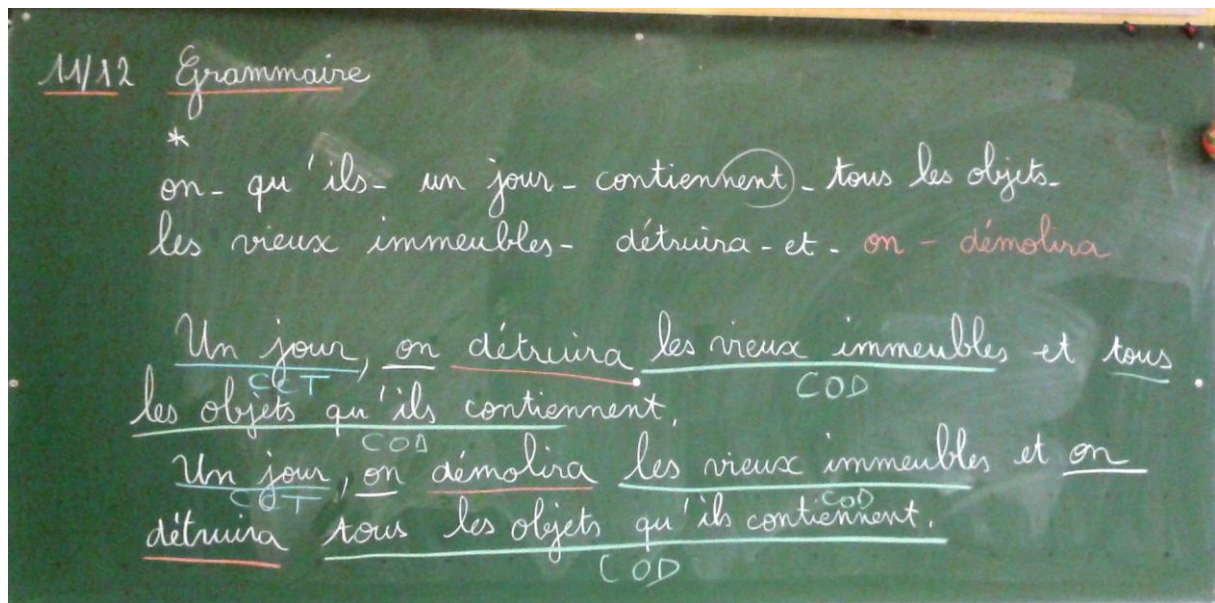 11/12 Grammaire
*
on - qu'ils - un jour - contiennent - tous les objets -
les vieux immeubles - détruira - et - on - démolira
Un jour, on détruira les vieux immeubles et tous
CCT COD
les objets qu'ils contiennent.
COD
Un jour, on démolira les vieux immeubles et on
CCT COD
détruira tous les objets qu'ils contiennent.
COD